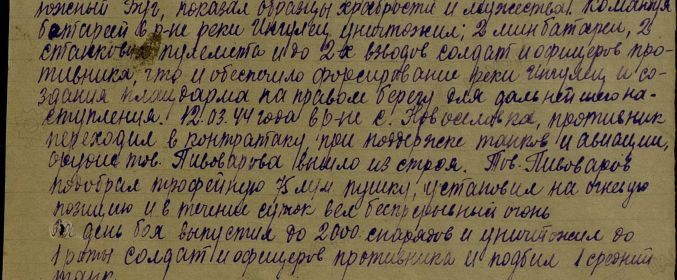 Южный Буг, показал образцы храбрости и мужества. Командуя
батареей в р-не реки Ингулец уничтожил: 2 минбатареи, 2
станковых пулемета и до 2х взводов солдат и офицеров про-
тивника, что и обеспечило форсирование реки Ингулец и со-
здания плацдарма на правом берегу для дальнейшего на-
ступления. 12.03.44 года в р-не с. Новоселовка, противник
переходил в контратаку, при поддержке танков и авиации,
орудие тов. Пивоварова вышло из строя. Тов. Пивоваров
подобрал трофейную 75 м/м пушку, установил на огневую
позицию и в течении суток вел беспрерывный огонь
За день боя выпустил до 2000 снарядов и уничтожил до
1 роты солдат и офицеров противника и подбил 1 средний
танк